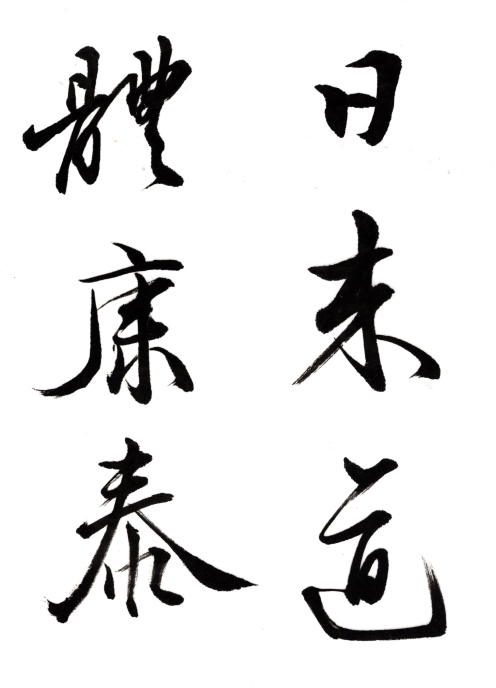 日来道
體康泰